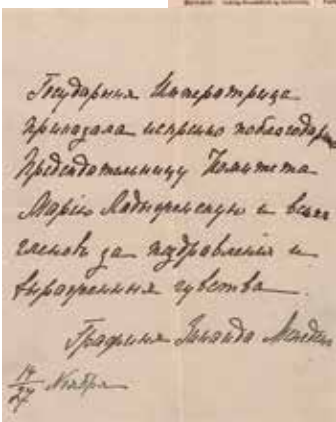 Государыня Императрица
приказала искренно поблагодарить
Председательницу Комитета
Марію и всѣхъ
членовъ за поздравленія и
выраженныя чувства.
Графиня Зинаида
14/27 Ноября